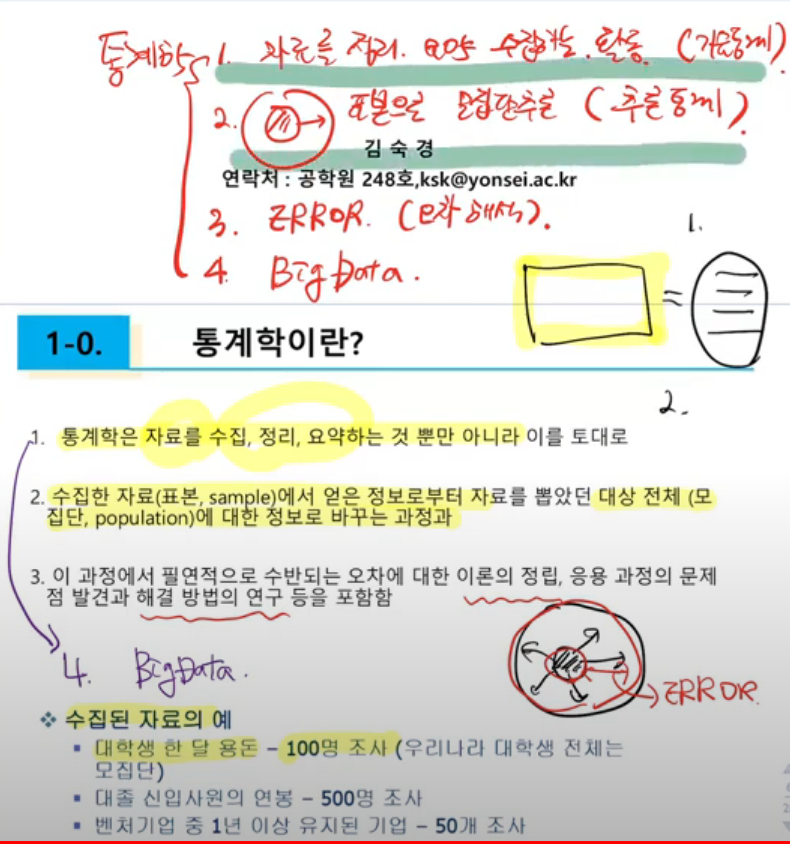 통계학 1. 자료를 정리. 요약 수집하는 활동. (기술통계).
2. 표본으로 모집단추론 (추론통계).
김 숙 경
연락처 : 공학원 248호,ksk@yonsei.ac.kr
3. ERROR. (오차해석).
4. BigData.
1.
≈
1-0. 통계학이란?
2.
1. 통계학은 자료를 수집, 정리, 요약하는 것 뿐만 아니라 이를 토대로
2. 수집한 자료(표본, sample)에서 얻은 정보로부터 자료를 뽑았던 대상 전체 (모
집단, population)에 대한 정보로 바꾸는 과정과
3. 이 과정에서 필연적으로 수반되는 오차에 대한 이론의 정립, 응용 과정의 문제
점 발견과 해결 방법의 연구 등을 포함함
4. BigData.
ERROR.
❖ 수집된 자료의 예
▪ 대학생 한 달 용돈 – 100명 조사 (우리나라 대학생 전체는
모집단)
▪ 대졸 신입사원의 연봉 – 500명 조사
▪ 벤처기업 중 1년 이상 유지된 기업 – 50개 조사